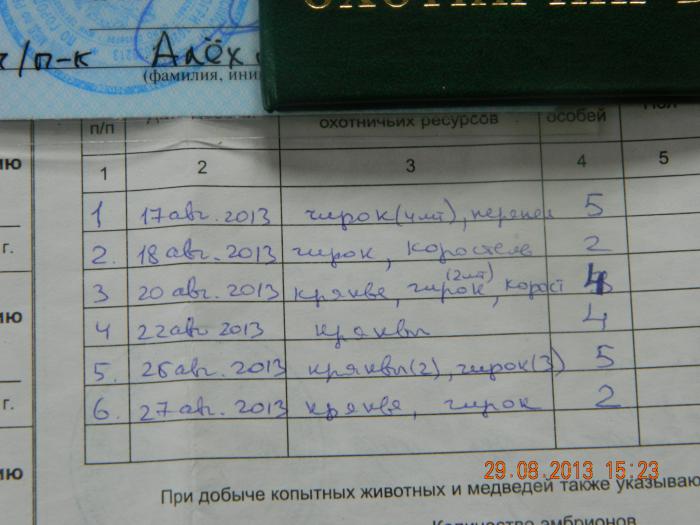 ОХОТНИЧИЙ
п/п-к Алёх
(фамилия, ини
п/п охотничьих ресурсов особей
1 2 3 4 5
1 17 авг. 2013 чирок (4 шт), перепел 5
2. 18 авг. 2013 чирок, коростель 2
3 20 авг. 2013 кряква, чирок (2шт), корост 4
4 22 авг 2013 кряквы 4
5. 26 авг. 2013 кряквы (2), чирок (3) 5
6. 27 авг. 2013 кряква, чирок 2
ию
г.
ию
г.
ию
При добыче копытных животных и медведей также указываю
Количество эмбрионов
29.08.2013 15:23